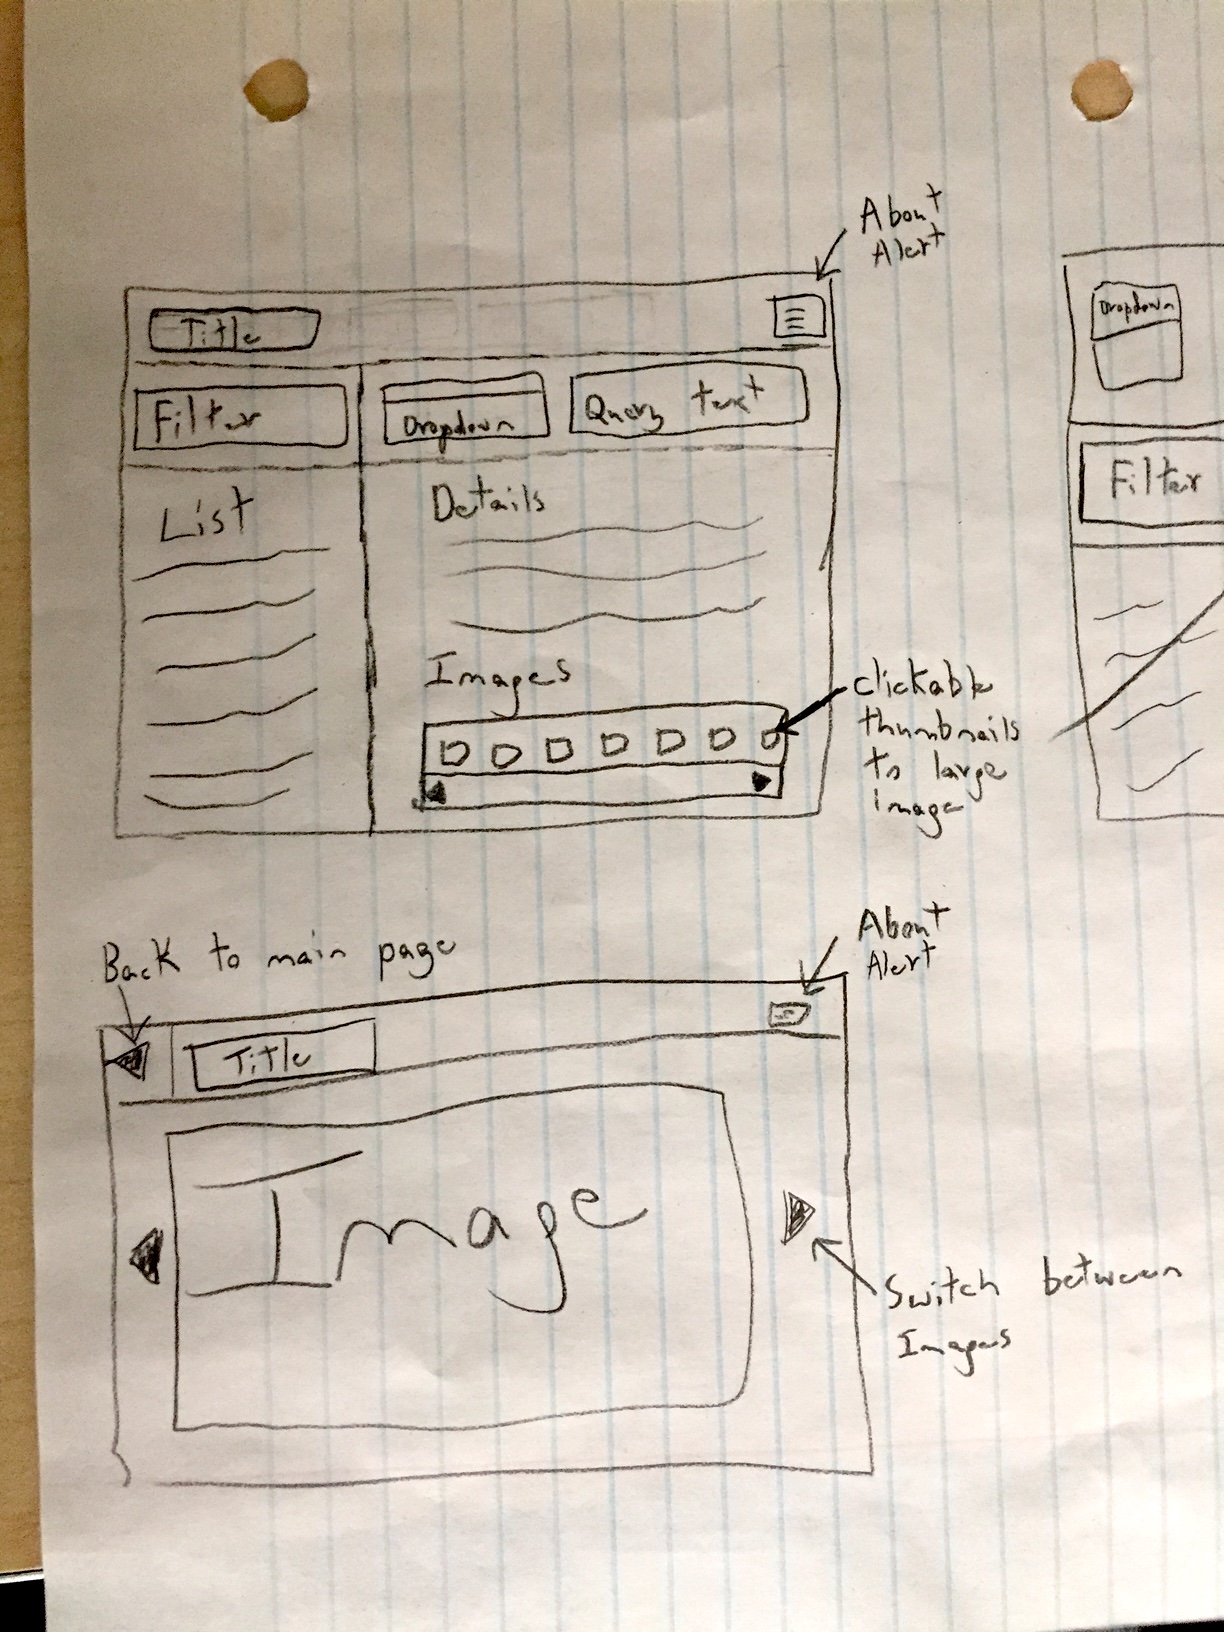 About
Alert
Title
Filter
Dropdown
Query text
List
Details
Images
clickable
thumbnails
to large
image
Dropdown
Filter
Back to main page
About
Alert
Title
Image
Switch between
Images